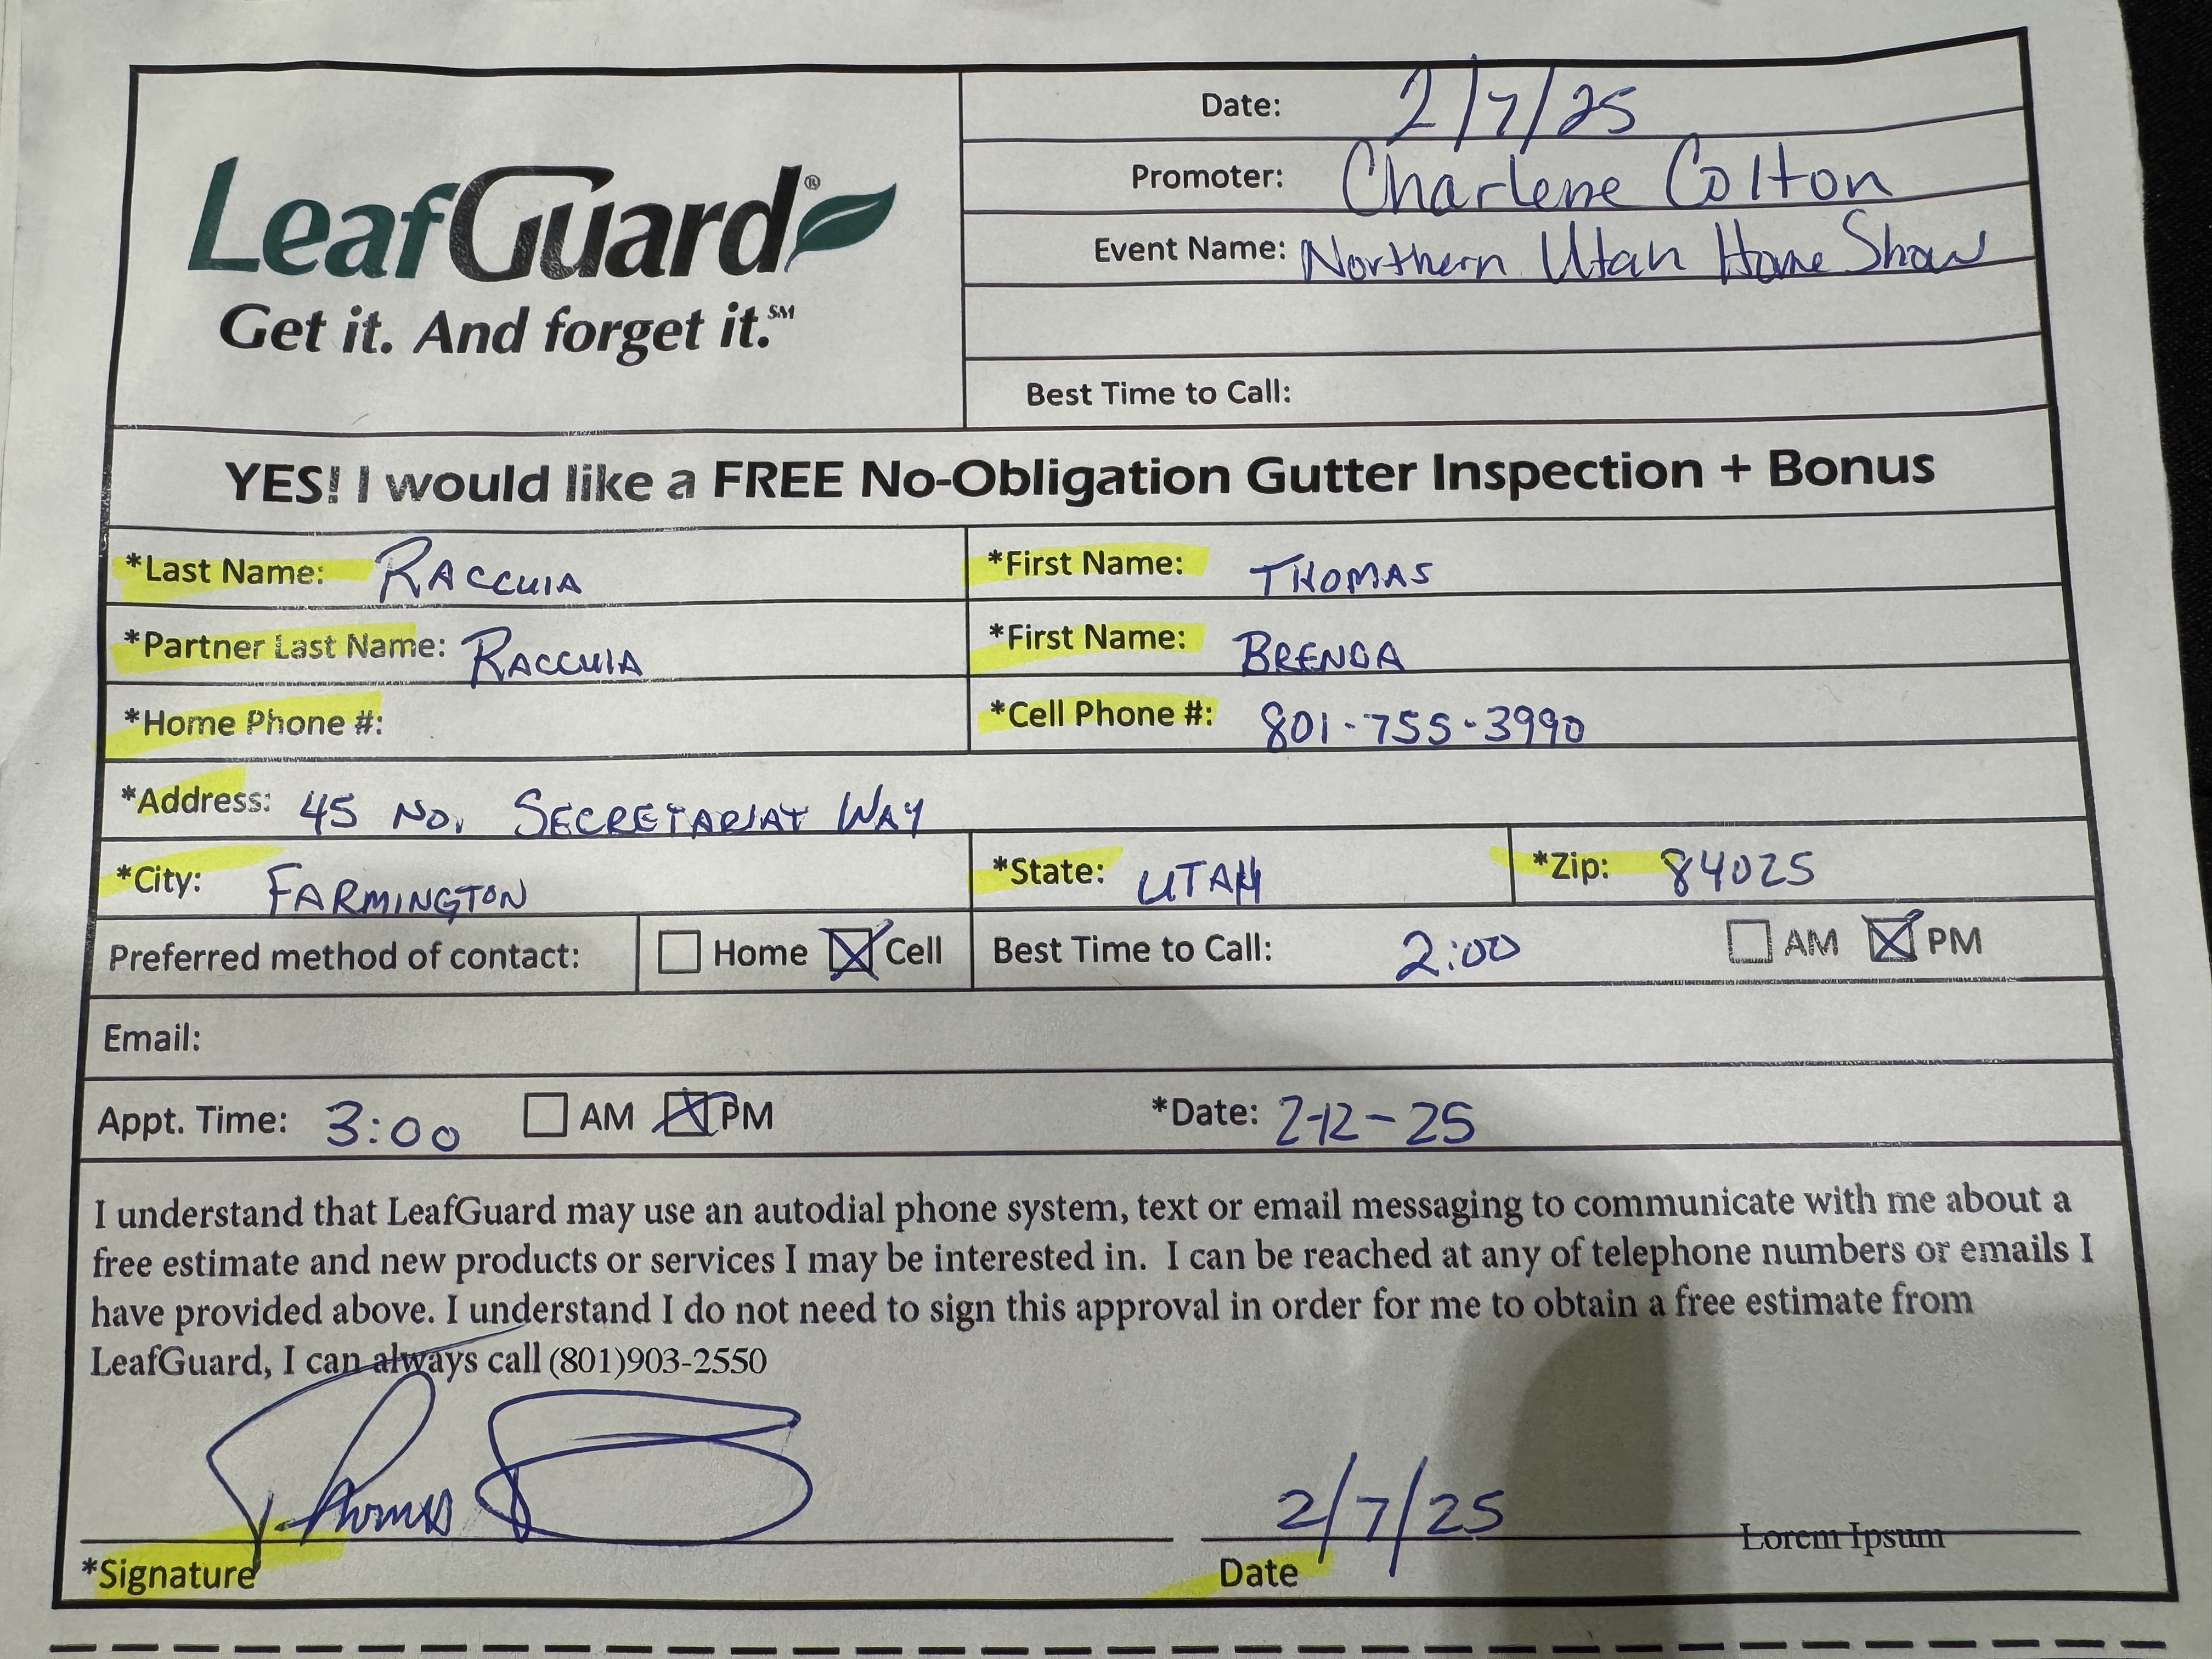 LeafGuard®
Get it. And forget it.℠
Date: 2/7/25
Promoter: Charlene Colton
Event Name: Northern Utah Home Show
Best Time to Call:
YES! I would like a FREE No-Obligation Gutter Inspection + Bonus
*Last Name: RACCUIA *First Name: THOMAS
*Partner Last Name: RACCUIA *First Name: BRENDA
*Home Phone #: *Cell Phone #: 801-755-3990
*Address: 45 NO. SECRETARIAT WAY
*City: FARMINGTON *State: UTAH *Zip: 84025
Preferred method of contact: ☐ Home ☒ Cell Best Time to Call: 2:00 ☐ AM ☒ PM
Email:
Appt. Time: 3:00 ☐ AM ☒ PM *Date: 2-12-25
I understand that LeafGuard may use an autodial phone system, text or email messaging to communicate with me about a
free estimate and new products or services I may be interested in. I can be reached at any of telephone numbers or emails I
have provided above. I understand I do not need to sign this approval in order for me to obtain a free estimate from
LeafGuard, I can always call (801)903-2550
Thomas 2/7/25 Lorem Ipsum
*Signature Date